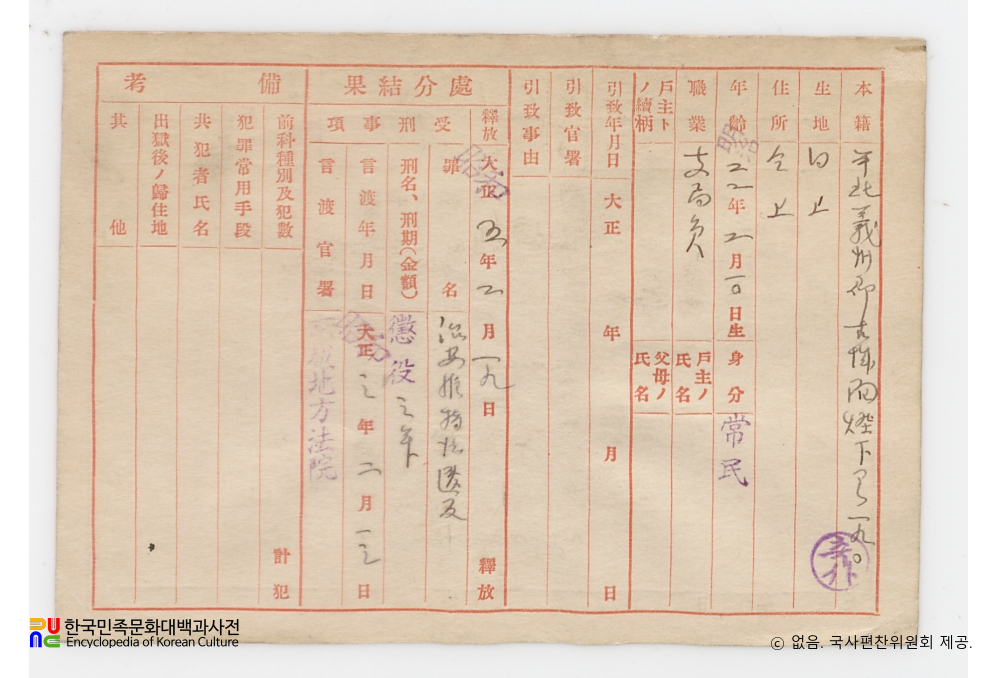 本籍 平北義州郡古 面 下 一九〇
生地 仝上
住所 仝上
年齡 明治二二年二月一〇日生
身分 常民
職業 支局員
戶主ノ氏名
戶主トノ續柄
父母ノ氏名
引致年月日 大正 年 月 日
引致官署
引致事由
處分結果
釋放 大正 昭和 五年二月一九日 釋放
受刑事項
罪名 治安維持法違反
刑名、刑期(金額) 懲役三年
言渡年月日 大正 昭和 三年二月一三日
言渡官署 地方法院
備考
前科種別及犯數 計 犯
犯罪常用手段
共犯者氏名
出獄後ノ歸住地
其他
한국민족문화대백과사전
Encyclopedia of Korean Culture
© 없음. 국사편찬위원회 제공.